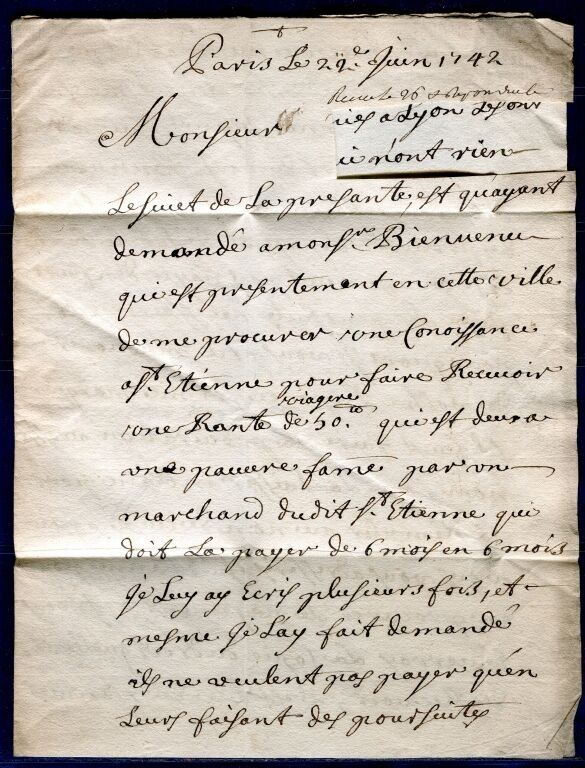 Paris Le 22e. Juin 1742
Monsieur
a Lyon
n'ont rien
Le suiet de La presante, est qu'ayant
demandé a monsr. Bienuenu
qui est presentement en cette ville
de me procurer une Conoissance
a St. Etienne pour faire Receuoir
viagere
une Rante de 50.tt qui est deu a
une pauure fame par un
marchand dudit St. Etienne qui
doit La payer de 6 mois en 6 mois
Je Luy ay Ecris plusieurs fois, et
mesme Je L'ay fait demandé
ils ne veulent pas payer qu'en
Leurs faisant des poursuites